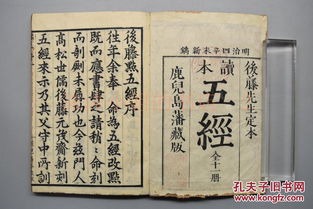 明治四辛未新鐫
後藤先生定本
讀本
五經 全十一册
鹿兒島藩藏版
後藤點五經序
往年余奉 命為五經改點
既而應書肆之請
命刻
高松世儒後藤元茂齋新刻
五經來示乃其父守中所訓
孔夫子旧书网